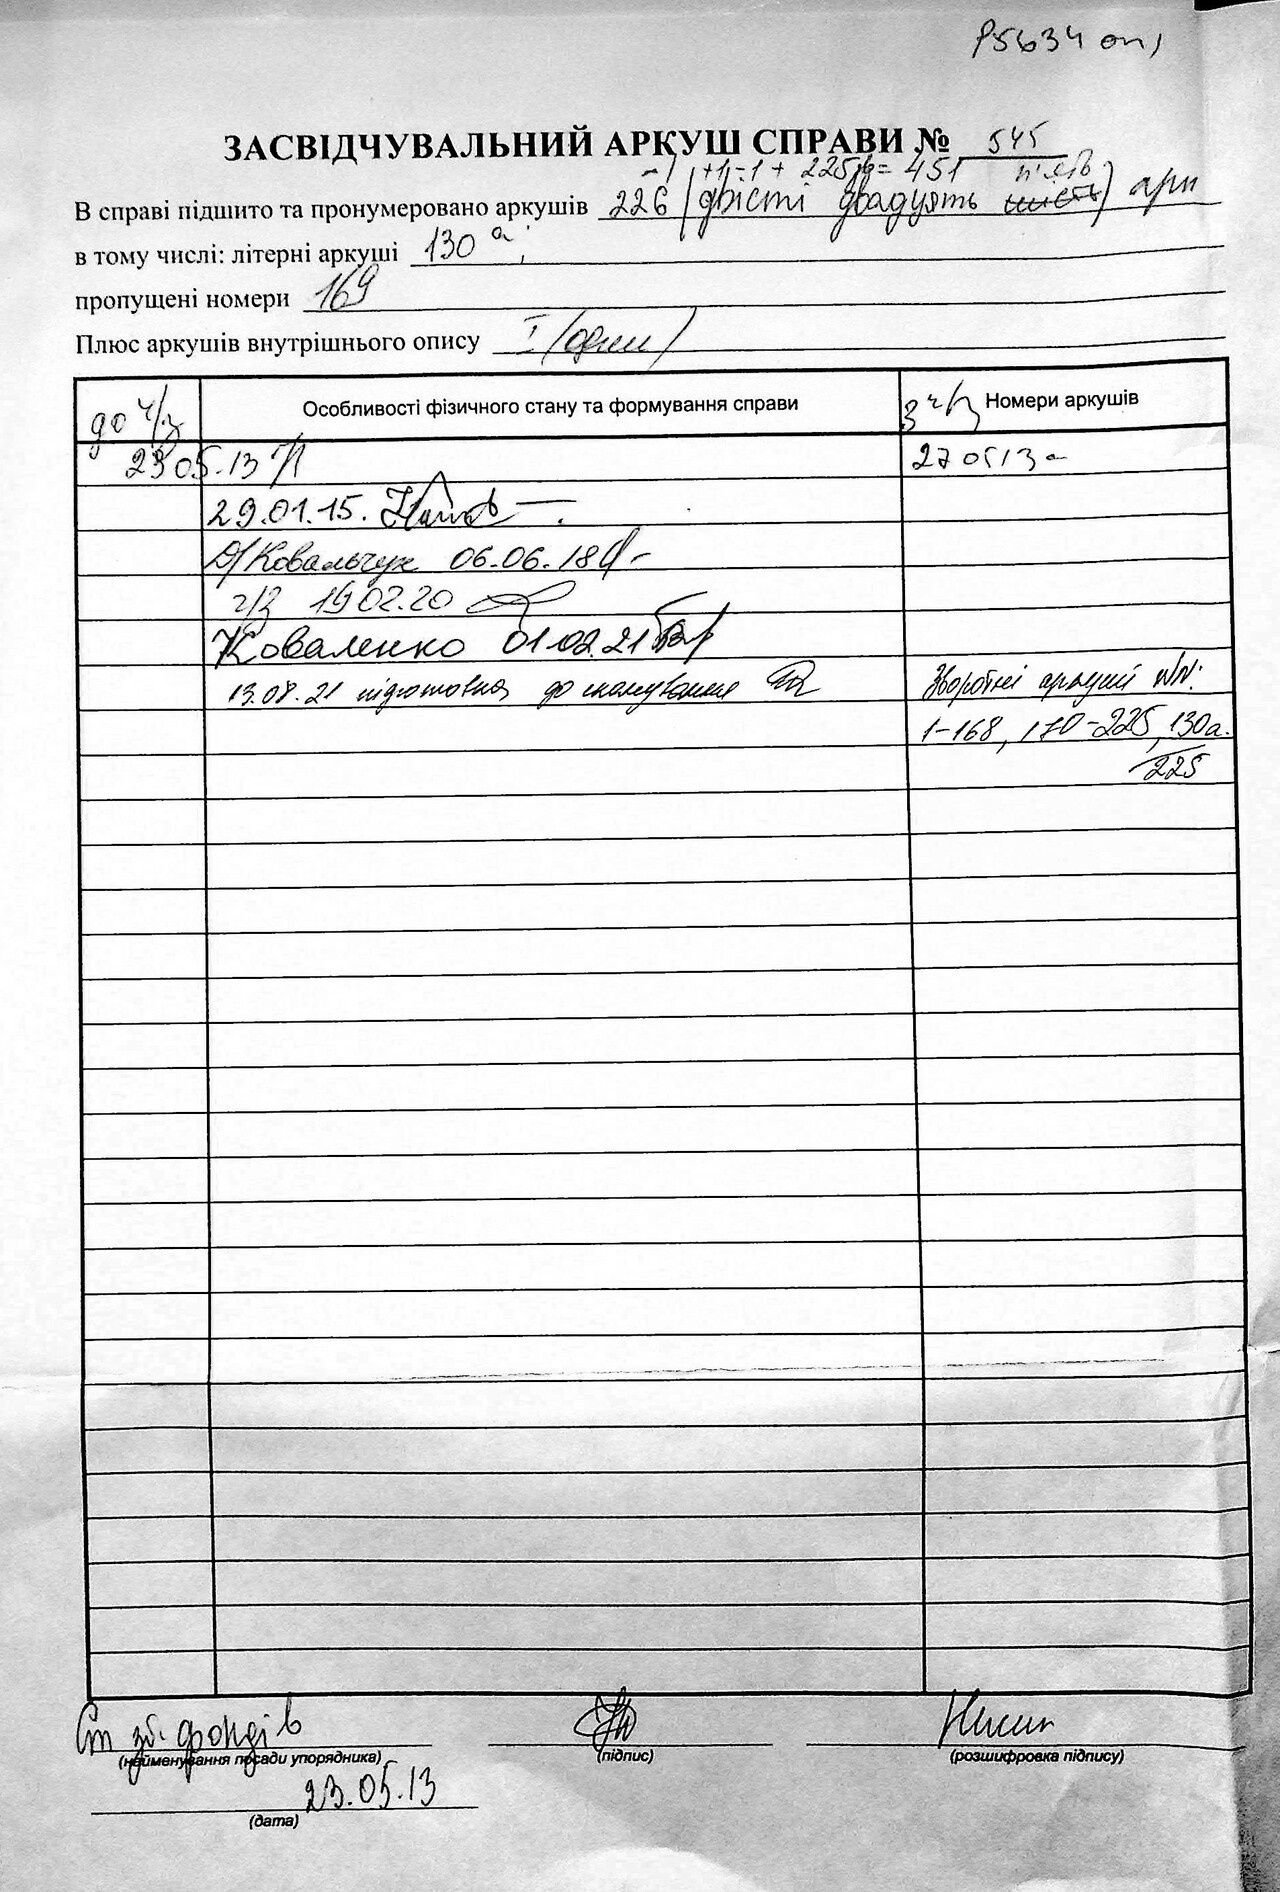 Р5634 оп1
ЗАСВІДЧУВАЛЬНИЙ АРКУШ СПРАВИ № 545
-1 +1=1 + 225зв = 451 п'ять
В справі підшито та пронумеровано аркушів 226 (двісті двадцять шість) арк
в тому числі: літерні аркуші 130а;
пропущені номери 169
Плюс аркушів внутрішнього опису I (один)
до ч/з Особливості фізичного стану та формування справи з ч/з Номери аркушів
23 05.13 27 05 13
29.01.15.
Ковальчук 06.06.18
ч/з 19 02.20
Коваленко 01.02.21
13.08.21 підготовка до сканування Зворотні аркуші №№:
1-168, 170-225, 130а.
225
Ст зб. фондів
(найменування посади упорядника) (підпис) (розшифровка підпису)
23.05.13
(дата)